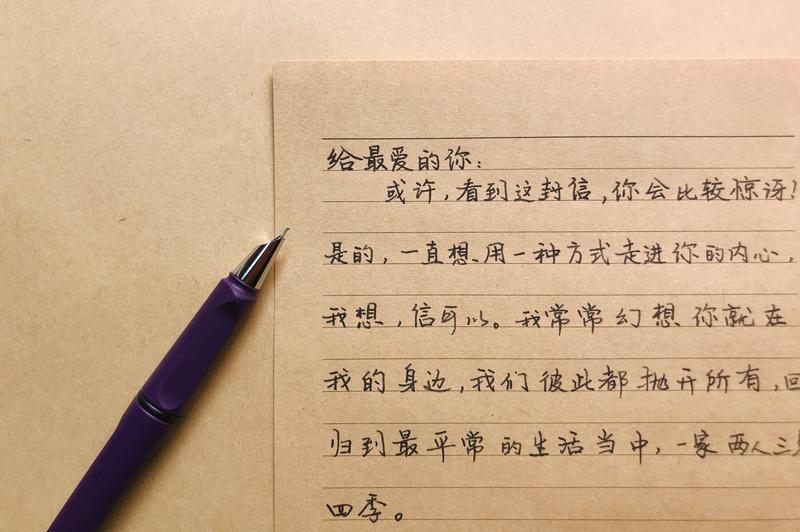 给最爱的你:
或许,看到这封信,你会比较惊讶!
是的,一直想用一种方式走进你的内心,
我想,信可以。我常常幻想你就在
我的身边,我们彼此都抛开所有,回
归到最平常的生活当中,一家两人三
四季。